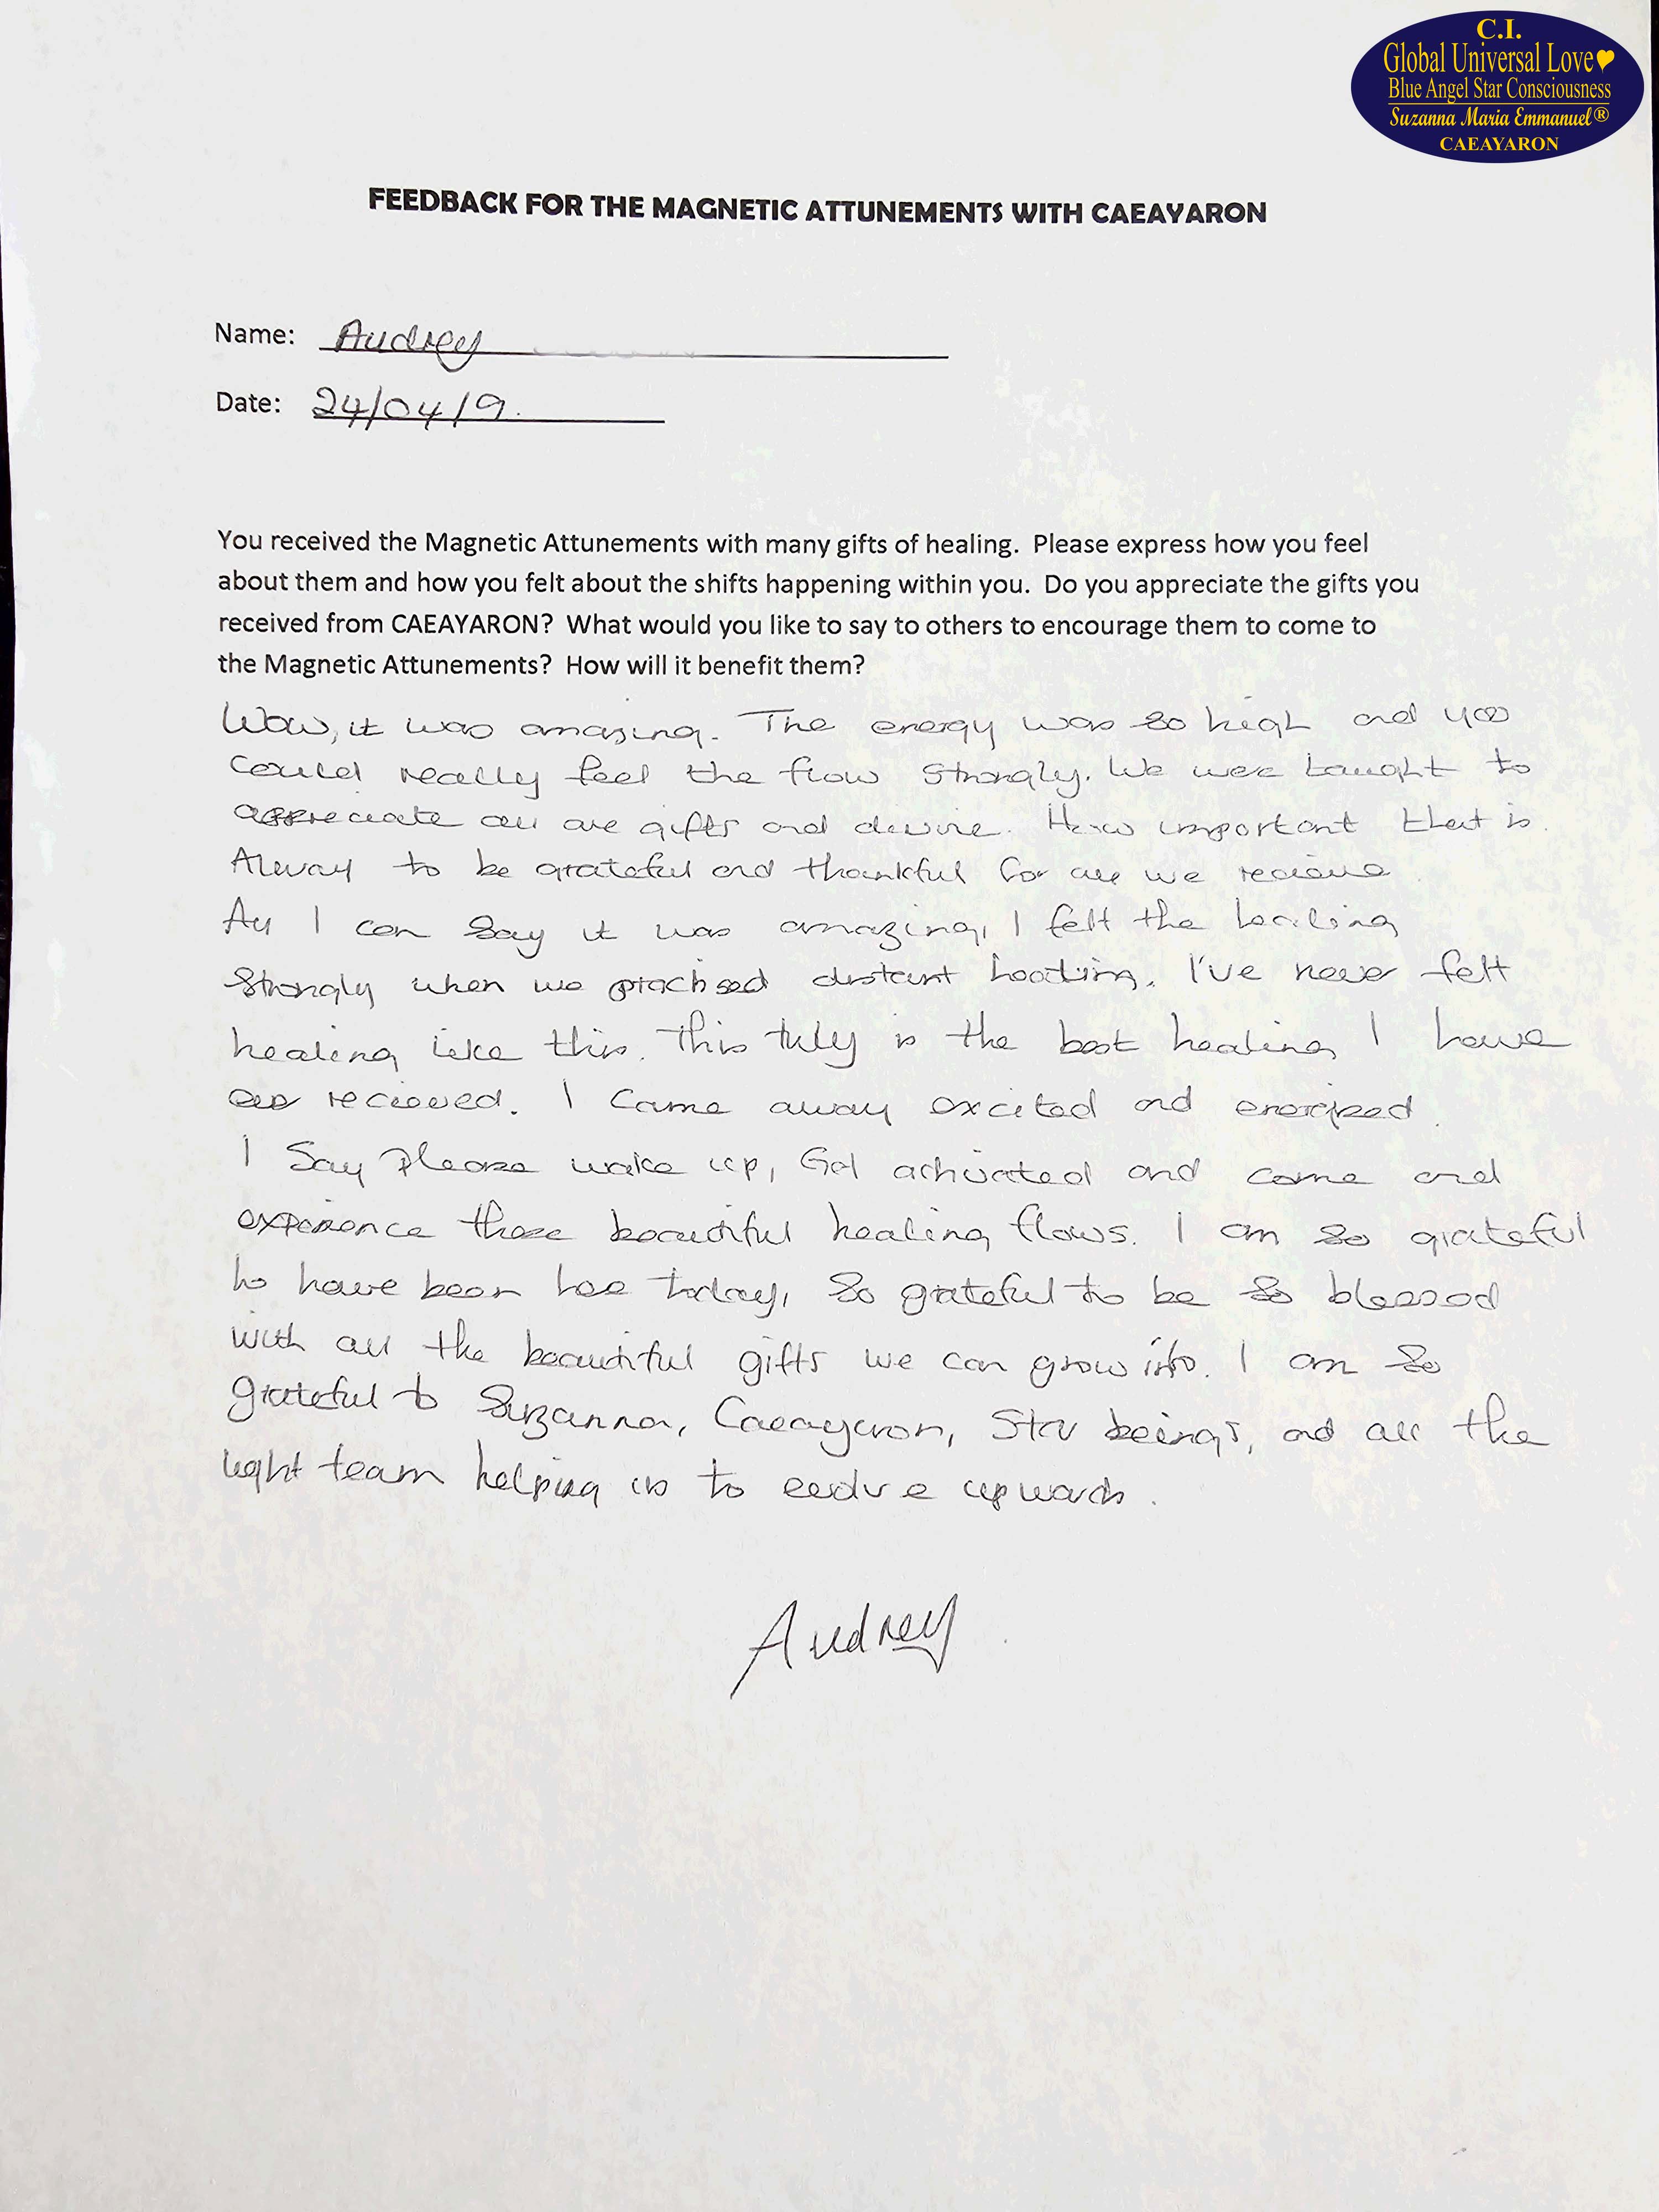 C.I.
Global Universal Love
Blue Angel Star Consciousness
Suzanna Maria Emmanuel®
CAEAYARON
FEEDBACK FOR THE MAGNETIC ATTUNEMENTS WITH CAEAYARON
Name: Audrey
Date: 24/04/19.
You received the Magnetic Attunements with many gifts of healing. Please express how you feel
about them and how you felt about the shifts happening within you. Do you appreciate the gifts you
received from CAEAYARON? What would you like to say to others to encourage them to come to
the Magnetic Attunements? How will it benefit them?
Wow, it was amazing. The energy was so high and you
could really feel the flow strongly. We were taught to
appreciate all are gifts and devine. How important that is.
Alway to be grateful and thankful for all we recieve
All I can say it was amazing, I felt the healing
strongly when we practised distant healing. I've never felt
healing like this. This truly is the best healing I have
ever recieved. I came away excited and energized.
I Say Please wake up, Get activated and come and
experience these beautiful healing flows. I am so grateful
to have been here today, so grateful to be so blessed
with all the beautiful gifts we can grow into. I am so
grateful to Suzanna, Caeayaron, Star beings, and all the
light team helping us to evolve upwards.
Audrey